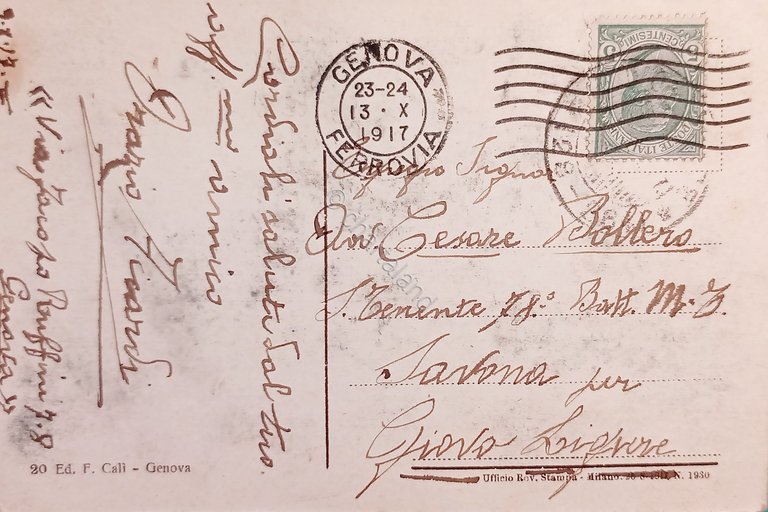 Cordiali saluti dal tuo
aff.mo amico
Orazio
«Via Jacopo Ruffini 7.8
Genova»
GENOVA
23-24
13 · X
1917
FERROVIA
CENTESIMI
5
Egregio Signor
Cesare Bollero
S. Tenente, 78° Batt. M.T.
Savona per
Giovo Ligure
20 Ed. F. Calì - Genova
Ufficio Rev. Stampa - Milano.
N. 1930